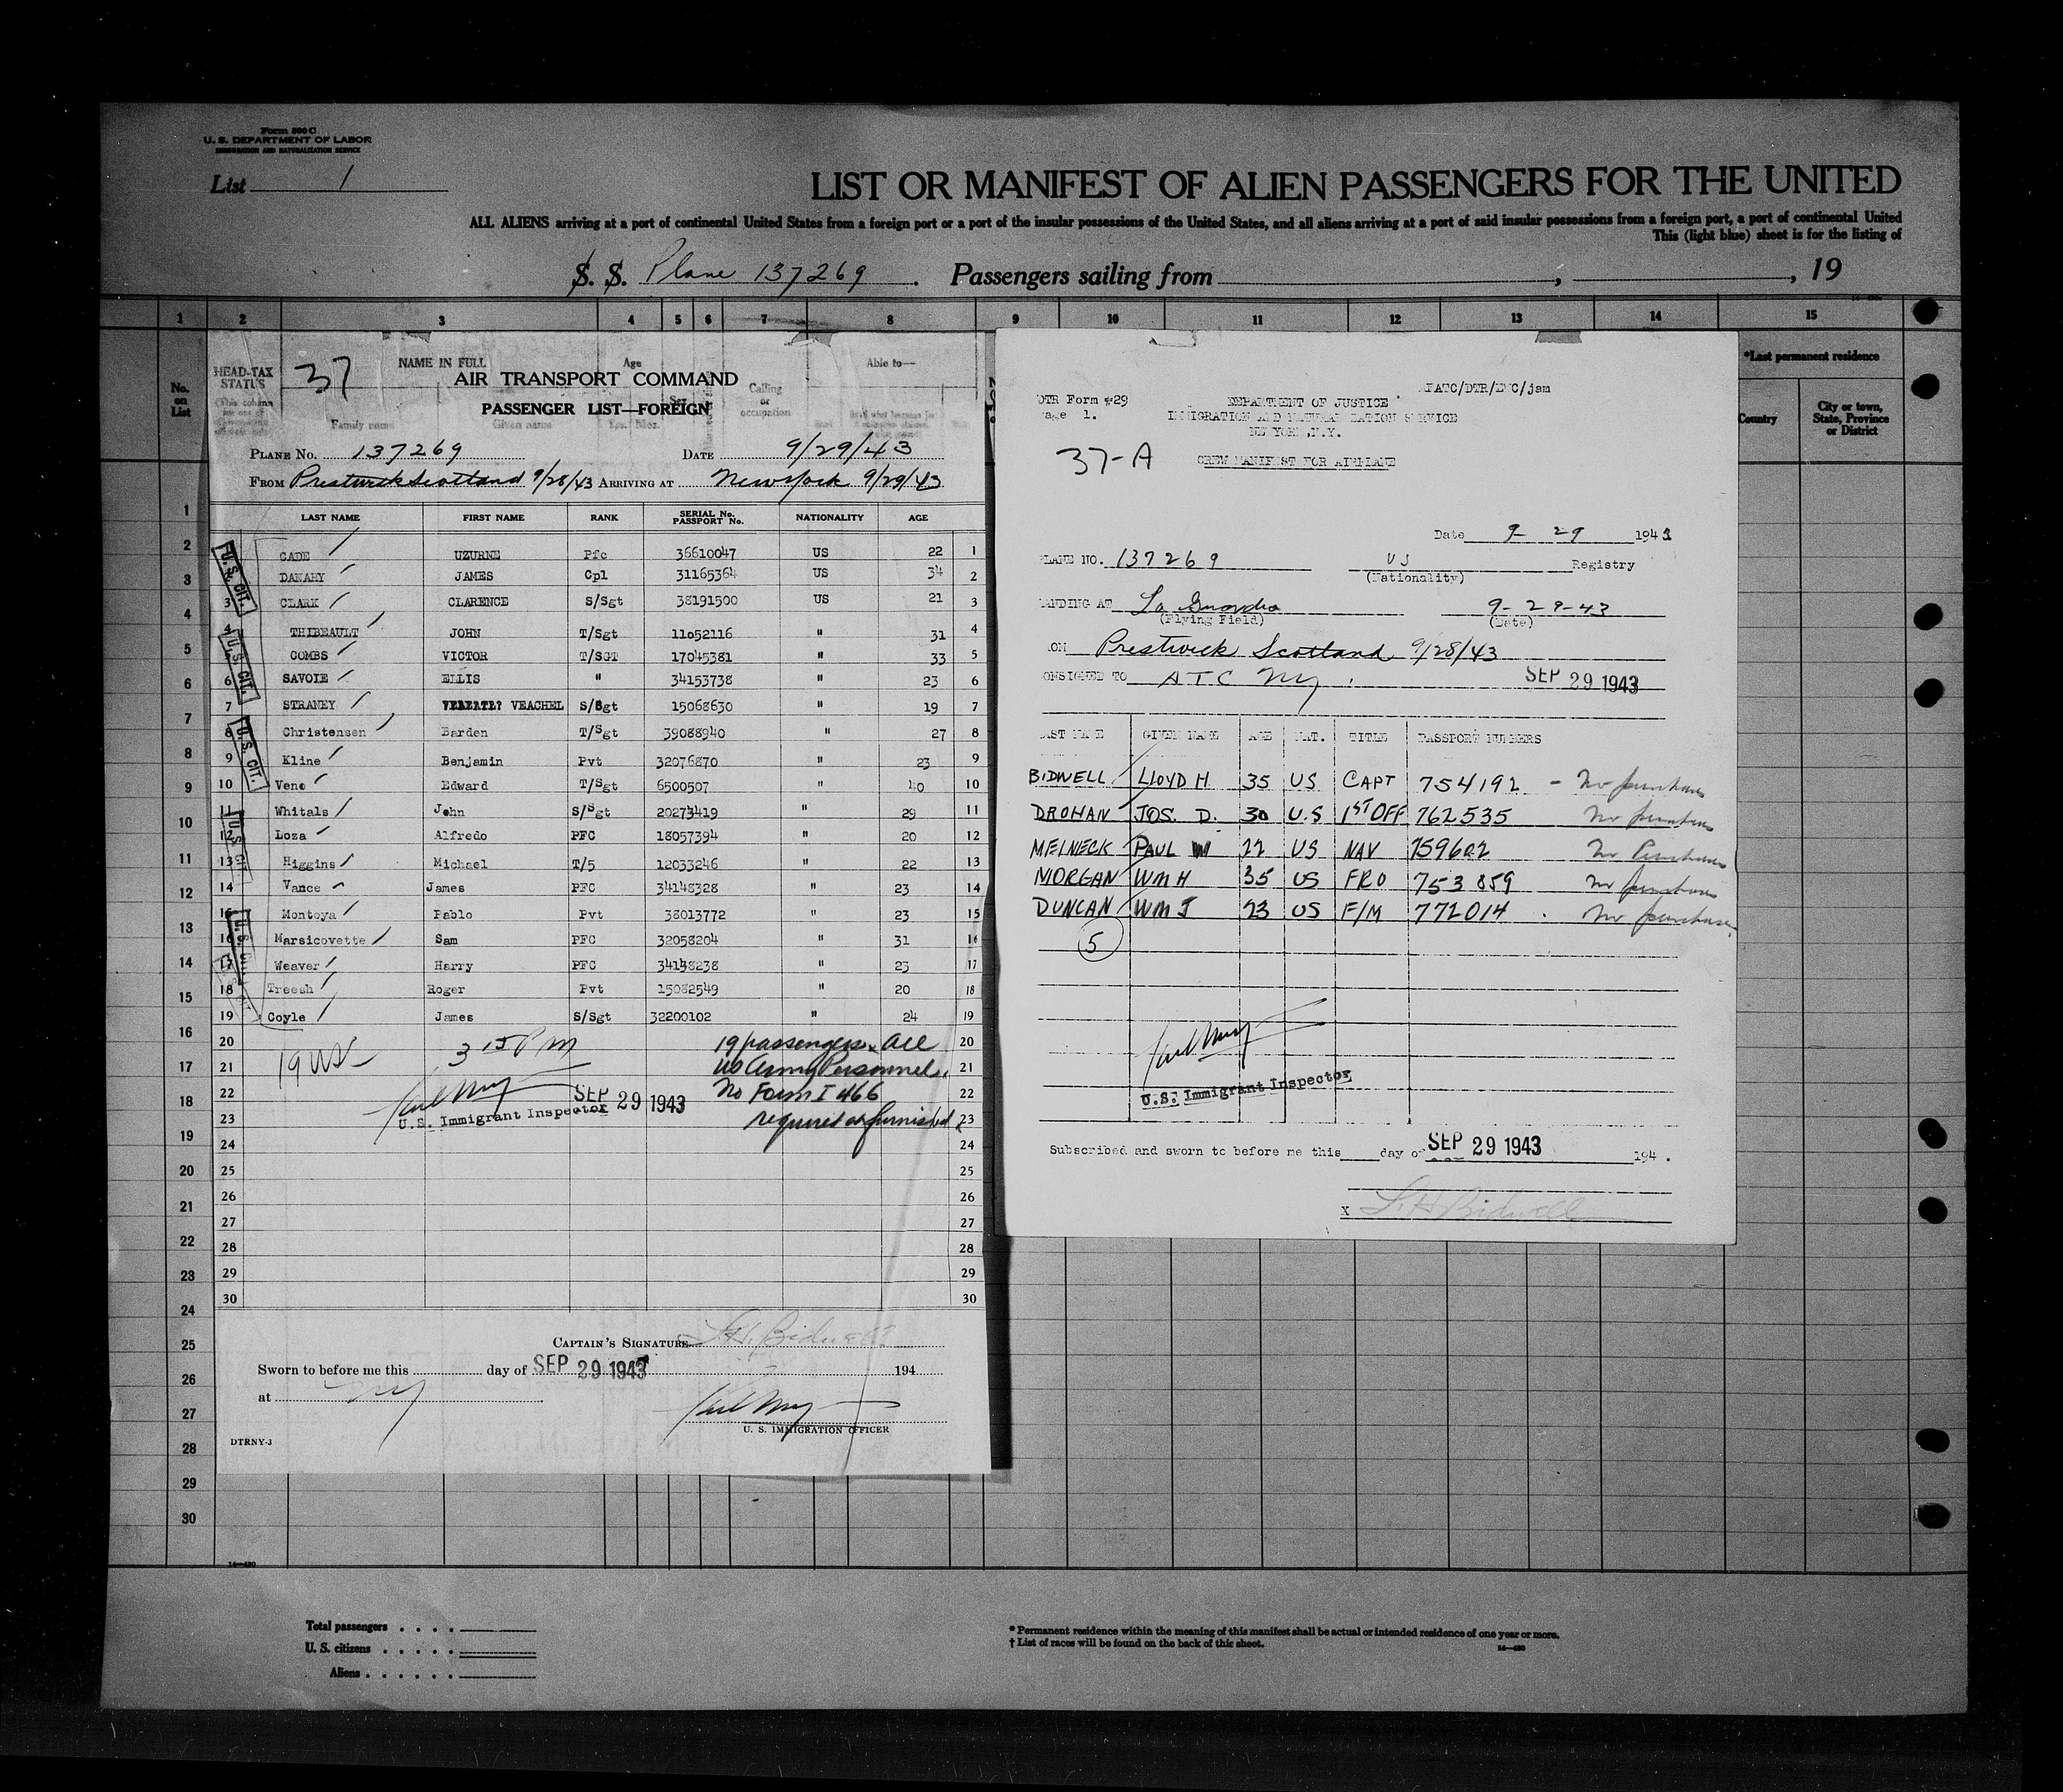 Form 500 C
U. S. DEPARTMENT OF LABOR
IMMIGRATION AND NATURALIZATION SERVICE
List 1
LIST OR MANIFEST OF ALIEN PASSENGERS FOR THE UNITED
ALL ALIENS arriving at a port of continental United States from a foreign port or a port of the insular possessions of the United States, and all aliens arriving at a port of said insular possessions from a foreign port, a port of continental United
This (light blue) sheet is for the listing of
S. S. Plane 137269. Passengers sailing from , , 19
1 2 3 4 5 6 7 8 9 10 11 12 13 14 15
No. on List
HEAD-TAX STATUS
NAME IN FULL
Family name Given name
Age
Sex
Calling or occupation
Able to—
*Last permanent residence
Country
City or town, State, Province or District
37
AIR TRANSPORT COMMAND
PASSENGER LIST—FOREIGN
PLANE No. 137269 DATE 9/29/43
FROM Prestwick Scotland 9/28/43 ARRIVING AT New York 9/29/43
LAST NAME FIRST NAME RANK SERIAL No. PASSPORT No. NATIONALITY AGE
CADE UZURNE Pfc 36610047 US 22 1
DANAHY JAMES Cpl 31165364 US 34 2
3 CLARK CLARENCE S/Sgt 38191500 US 21 3
4 THIBEAULT JOHN T/Sgt 11052116 " 31 4
5 COMBS VICTOR T/SGT 17045381 " 33 5
6 SAVOIE ELLIS " 34153738 " 23 6
7 STRANEY VEACHEL S/Sgt 15068630 " 19 7
8 Christensen Barden T/Sgt 39088940 " 27 8
9 Kline Benjamin Pvt 32076870 " 23 9
10 Veno Edward T/Sgt 6500507 " 40 10
11 Whitals John S/Sgt 20273419 " 29 11
12 Loza Alfredo PFC 18057394 " 20 12
13 Higgins Michael T/5 12033246 " 22 13
14 Vance James PFC 34148328 " 23 14
15 Montoya Pablo Pvt 38013772 " 23 15
16 Marsicovette Sam PFC 32058204 " 31 16
17 Weaver Harry PFC 34148238 " 23 17
18 Treesh Roger Pvt 15082549 " 20 18
19 Coyle James S/Sgt 32200102 " 24 19
U.S. CIT.
U.S. CIT.
U.S. CIT.
U.S. CIT.
20 3 15 PM 19 passengers. All 20
21 19 US US Army Personnel. 21
22 SEP 29 1943 No Form I 466 22
23 U.S. Immigrant Inspector required or furnished 23
24 24
25 25
26 26
27 27
28 28
29 29
30 30
CAPTAIN'S SIGNATURE L.H. Bidwell
Sworn to before me this day of SEP 29 1943 194
at NY
U. S. IMMIGRATION OFFICER
DTRNY-3
ATC/DTR/ENC/jam
DTR Form #29
Page 1.
DEPARTMENT OF JUSTICE
IMMIGRATION AND NATURALIZATION SERVICE
NEW YORK, N.Y.
37-A
CREW MANIFEST FOR AIRPLANE
Date 9- 29 1943
PLANE NO. 137269 US Registry
(Nationality)
LANDING AT La Guardia 9-29-43
(Flying Field) (Date)
Prestwick Scotland 9/28/43
CONSIGNED TO ATC NY. SEP 29 1943
LAST NAME GIVEN NAME AGE NAT. TITLE PASSPORT NUMBERS
BIDWELL LLOYD H 35 US CAPT 754192 - No purchases
DROHAN JOS. D. 30 U.S 1ST OFF 762535 No purchases
MELNECK PAUL M 22 US NAV 759602 No Purchases
MORGAN WM H 35 US FRO 753859 No purchases
DUNCAN WM J 23 US F/M 772014 . No purchases.
5
U.S. Immigrant Inspector
Subscribed and sworn to before me this day of SEP 29 1943 194 .
X L.H. Bidwell
1
2
3
4
5
6
7
8
9
10
11
12
13
14
15
16
17
18
19
20
21
22
23
24
25
26
27
28
29
30
14—430
Total passengers . . . .
U. S. citizens . . . . .
Aliens . . . . . .
* Permanent residence within the meaning of this manifest shall be actual or intended residence of one year or more.
† List of races will be found on the back of this sheet.
14—430